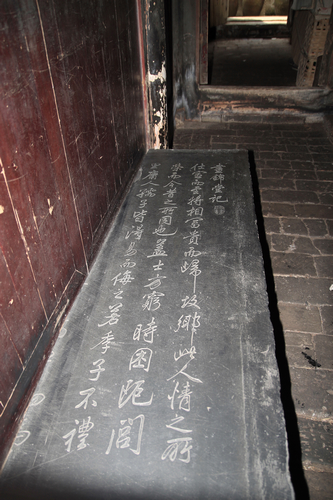 晝錦堂記
仕宦而至將相富貴而歸故鄉此人情之所
榮而今昔之所同也蓋士方窮時困阨閭
里庸人孺子皆得易而侮之若季子不禮